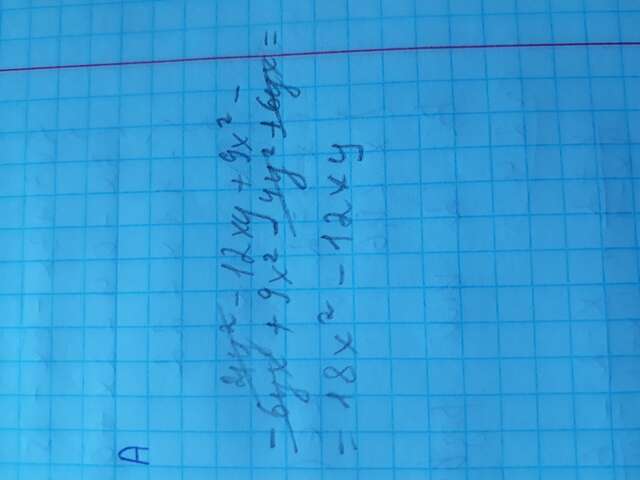 A
4y² - 12xy + 9x² -
- 6yx + 9x² - 4y² + 6yx =
= 18x² - 12xy